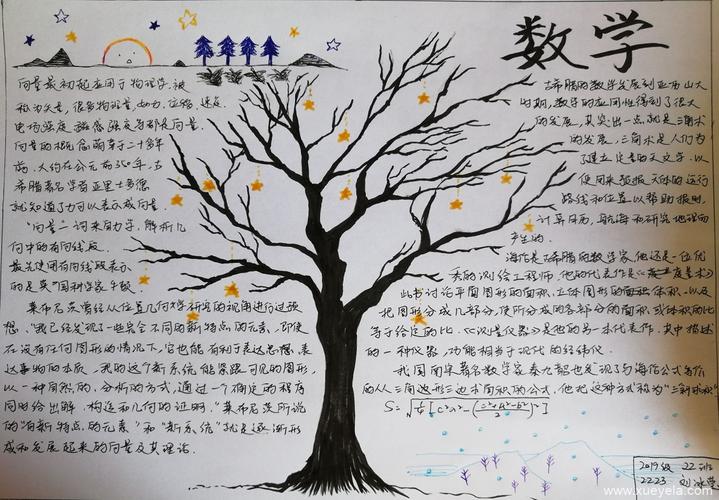 数学
向量最初起应用于物理学,被
称为矢量,很多物理量,如力、位移、速度
电场强度、磁感强度等都是向量.
向量的概念萌芽于二千多年
前.大约在公元前350年,古
希腊著名学者亚里士多德
就知道了力可以表示成向量
"向量"一词来自力学、解析几
何中的有向线段.
最先使用有向线段表示
的是英国科学家牛顿.
莱布尼茨曾经从位置几何学研究的视角进行过预
想,"我已经发现了一些完全不同的新特点的元素,即使
在没有任何图形的情况下,它也能有利于表达思想、表
达事物的本质,我的这个新系统能紧跟可见的图形,
以一种自然的、分析的方式,通过一个确定的程序
同时给出解、构造和几何的证明."莱布尼茨所说
的"有新特点的元素"和"新系统"就是逐渐形
成和发展起来的向量及其理论.
古希腊的数学发展到亚历山大
时期,数学的应用性得到了很大
的发展,其突出一点就是三角术
的发展,三角术是人们为
了建立定量的天文学,以
使用来预报天体的运行
路线和位置以帮助报时,
计算日历,航海和研究地理而
产生的.
海伦是古希腊的数学家,他还是一位优
秀的测绘工程师,他的代表作是《度量术》
此书讨论平面图形的面积,立体图形的面积体积,以及
把图形分成几部分,使所分成的各部分的面积或体积的比
等于给定的比.《测量仪器》是他的另一本代表作.其中描述
的一种仪器,功能相当于现代的经纬仪.
我国南宋著名数学家秦九韶也发现了与海伦公式等价
的从三角形三边求面积的公式,他把这种方法称为"三斜求积
S=√¼[c²a²-(c²+a²-b²/2)²]
2019级 22班
2223 刘
www.xueyela.com